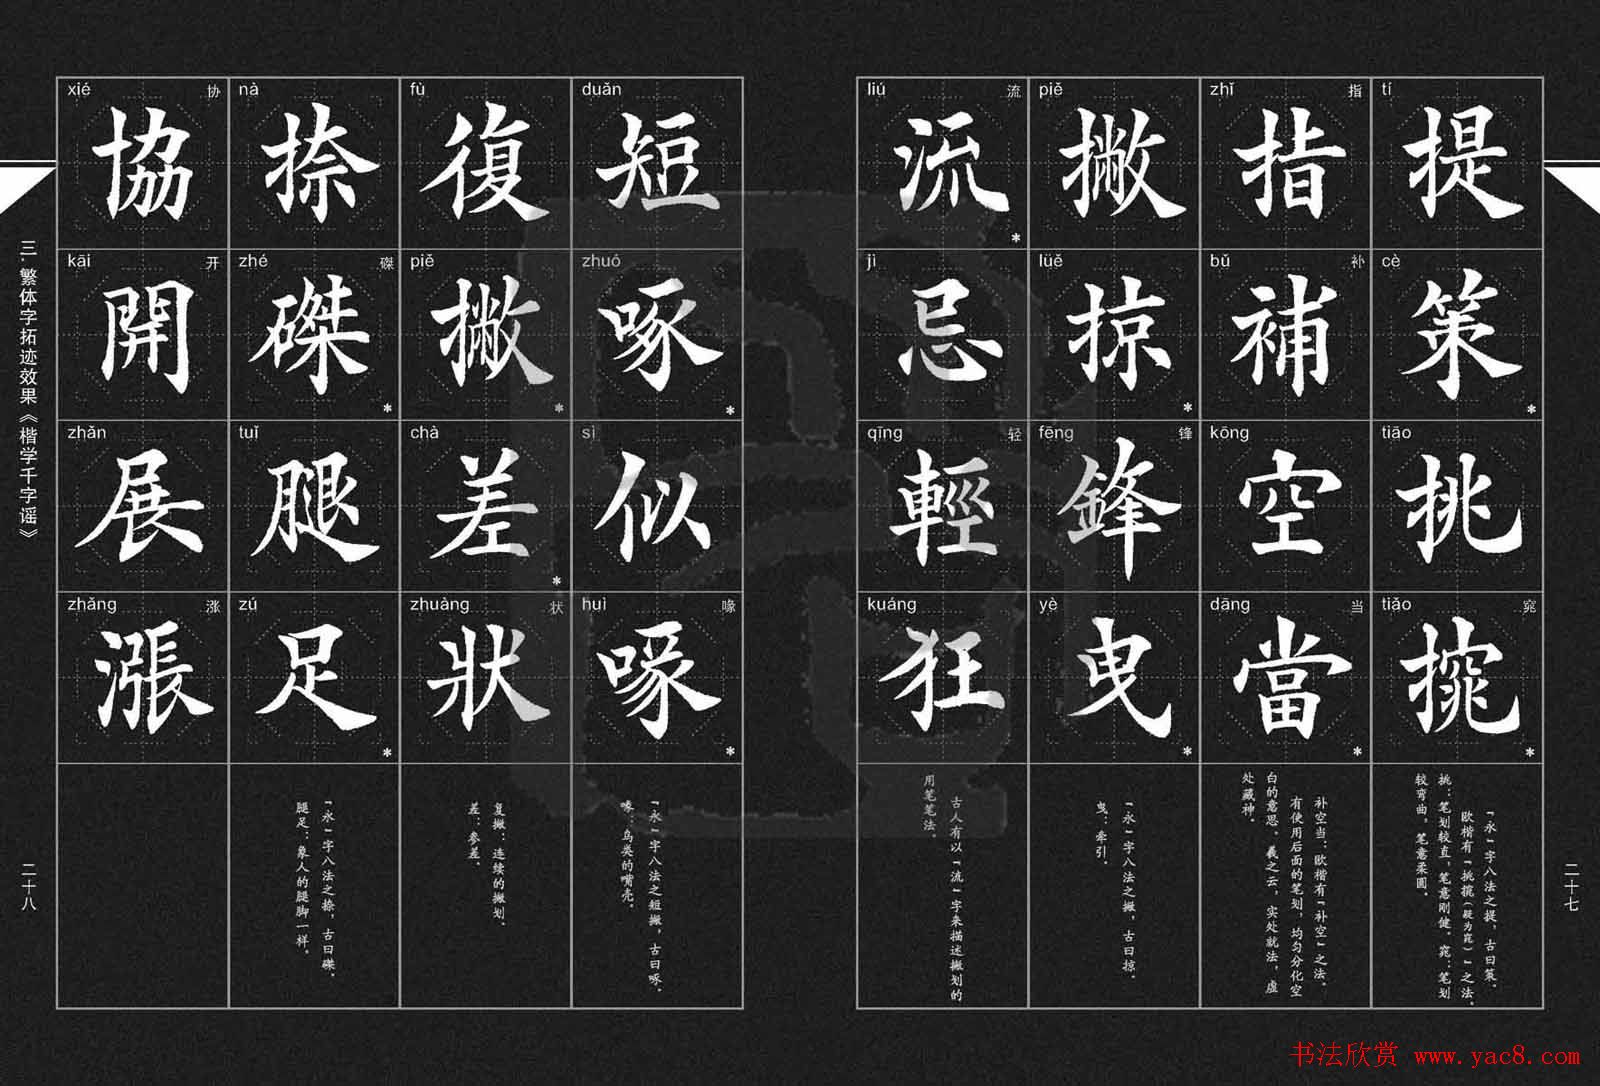 tí
提
cè
策
*
tiāo
挑
tiǎo
窕
*
「永」字八法之提，古曰策。
欧楷有「挑㨪（疑为窕）」之法。
挑：笔划较直，笔意刚健。窕：笔划
较弯曲，笔意柔圆。
zhǐ 指
指
bǔ 补
補
kōng
空
dāng 当
當
*
补空当：欧楷有「补空」之法。
有使用后面的笔划，均匀分化空
白的意思。羲之云，实处就法，虚
处藏神。
piě
撇
lüě
掠
*
fēng 锋
鋒
yè
曳
*
「永」字八法之撇，古曰掠。
曳：牵引。
liú 流
流
*
jì
忌
qīng 轻
輕
kuáng
狂
古人有以「流」字来描述撇划的
用笔笔法。
二十七
duǎn
短
zhuó
啄
*
sì
似
huì 喙
喙
*
「永」字八法之短撇，古曰啄。
喙：鸟类的嘴壳。
fù
復
piě
撇
*
chà
差
*
zhuàng 状
狀
复撇：连续的撇划。
差：参差。
nà
捺
zhé 磔
磔
*
tuǐ
腿
zú
足
*
「永」字八法之捺，古曰磔。
腿足：象人的腿脚一样。
xié 协
協
kāi 开
開
zhǎn
展
zhǎng 涨
漲
三.繁体字拓迹效果《楷学千字谣》
二十八
书法欣赏 www.yac8.com